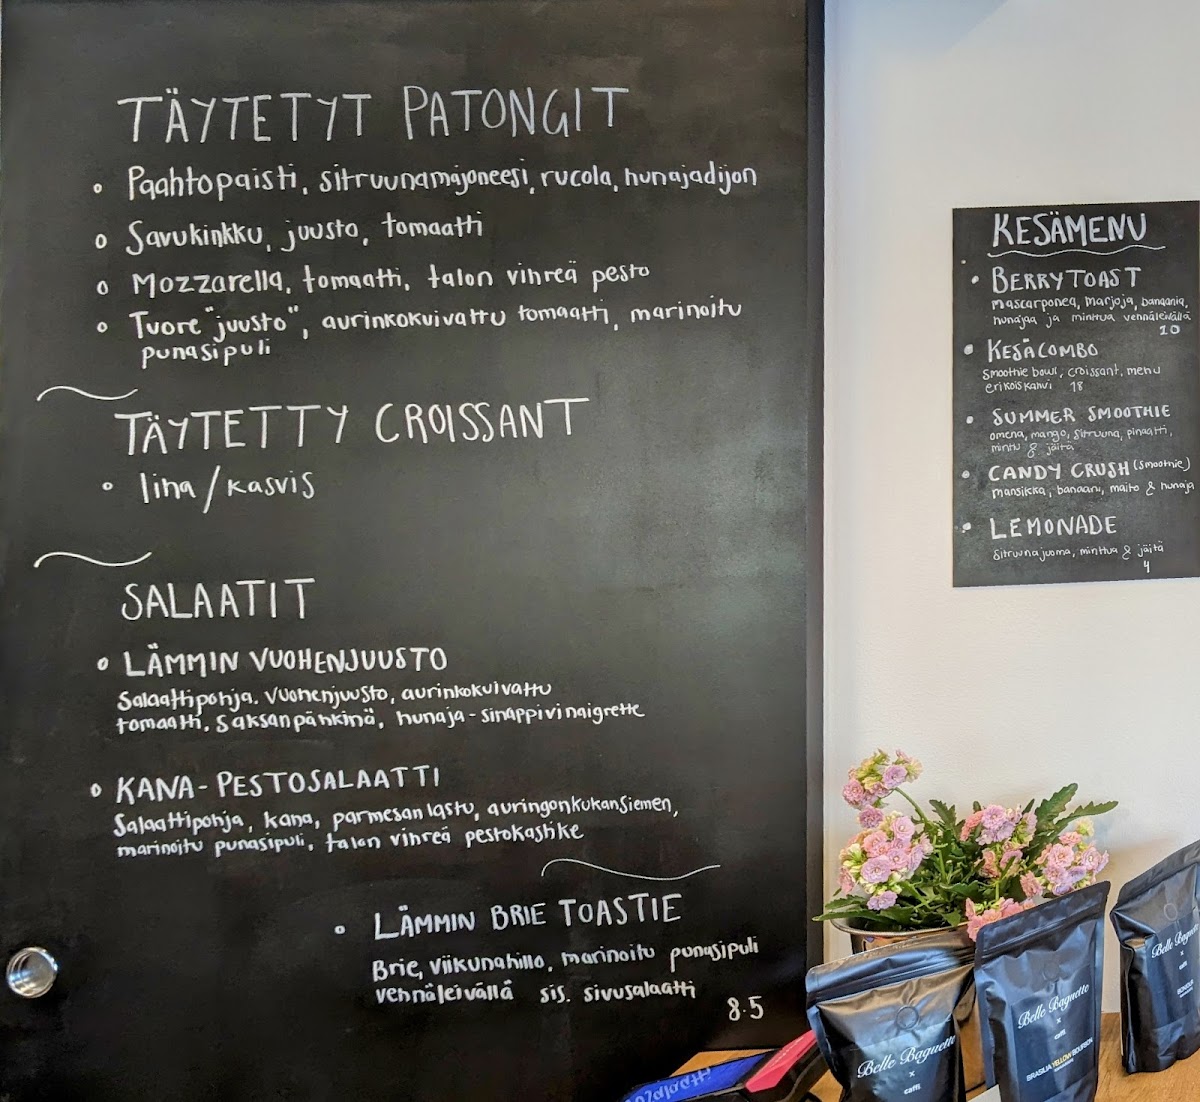 TÄYTETYT PATONGIT
Paahtopaisti, sitruunamajoneesi, rucola, hunajadijon
Savukinkku, juusto, tomaatti
Mozzarella, tomaatti, talon vihreä pesto
Tuore "juusto", aurinkokuivattu tomaatti, marinoitu
punasipuli
TÄYTETTY CROISSANT
liha/kasvis
SALAATIT
LÄMMIN VUOHENJUUSTO
Salaattipohja, vuohenjuusto, aurinkokuivattu
tomaatti, saksanpähkinä, hunaja-sinappivinaigrette
KANA-PESTOSALAATTI
Salaattipohja, kana, parmesanlastu, auringonkukansiemen,
marinoitu punasipuli, talon vihreä pestokastike
LÄMMIN BRIE TOASTIE
Brie, viikunahillo, marinoitu punasipuli
vehnäleivällä sis. sivusalaatti
8.5
KESÄMENU
BERRYTOAST
mascarponea, marjoja, banaania,
hunajaa ja minttua vehnäleivällä
10
KESÄCOMBO
Smoothie bowl, croissant, mehu
erikoiskahvi 18
SUMMER SMOOTHIE
omena, mango, sitruuna, pinaatti,
minttu & jäitä
CANDY CRUSH (smoothie)
mansikka, banaani, maito & hunaja
LEMONADE
Sitruunajuoma, minttua & jäitä
4
Belle Baguette
x
caffi
Belle Baguette
x
caffi
BRASILIA YELLOW BOURBON
Belle Baguette
x
caffi